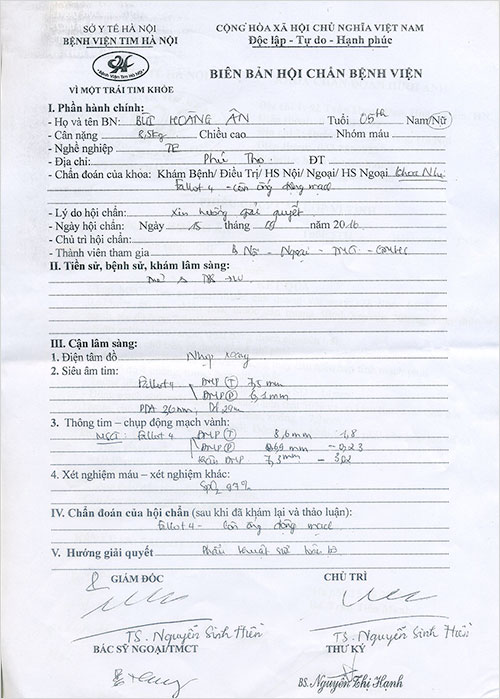 SỞ Y TẾ HÀ NỘI
BỆNH VIỆN TIM HÀ NỘI
Bệnh Viện Tim Hà Nội
VÌ MỘT TRÁI TIM KHỎE
CỘNG HÒA XÃ HỘI CHỦ NGHĨA VIỆT NAM
Độc lập - Tự do - Hạnh phúc
BIÊN BẢN HỘI CHẨN BỆNH VIỆN
I. Phần hành chính:
- Họ và tên BN: BÙI HOÀNG ÂN Tuổi 05th Nam/Nữ
- Cân nặng 8,5kg Chiều cao Nhóm máu
- Nghề nghiệp TE
- Địa chỉ: Phú Thọ ĐT
- Chẩn đoán của khoa: Khám Bệnh/ Điều Trị/ HS Nội/ Ngoại/ HS Ngoại Khoa Nhi
Fallot 4 - còn ống động mạch
- Lý do hội chẩn: Xin hướng giải quyết
- Ngày hội chẩn: Ngày 15 tháng năm 2016
- Chủ trì hội chẩn:
- Thành viên tham gia Nội - Ngoại - TMCT -
II. Tiền sử, bệnh sử, khám lâm sàng:
III. Cận lâm sàng:
1. Điện tâm đồ Nhịp xoang
2. Siêu âm tim:
Fallot 4 ĐMP (T) 7,5 mm
ĐMP (P) 6,1 mm
PDA
3. Thông tim – chụp động mạch vành:
MSCT: Fallot 4 ĐMP (T) 8,6 mm 1,8
ĐMP (P) mm
ĐMP 7,3 mm
4. Xét nghiệm máu – xét nghiệm khác:
SpO2 97%
IV. Chẩn đoán của hội chẩn (sau khi đã khám lại và thảo luận):
Fallot 4 - Còn ống động mạch
V. Hướng giải quyết Phẫu thuật
GIÁM ĐỐC CHỦ TRÌ
TS. Nguyễn Sinh Hiền TS. Nguyễn Sinh Hiền
BÁC SỸ NGOẠI/TMCT THƯ KÝ
BS. Nguyễn Thị Hạnh